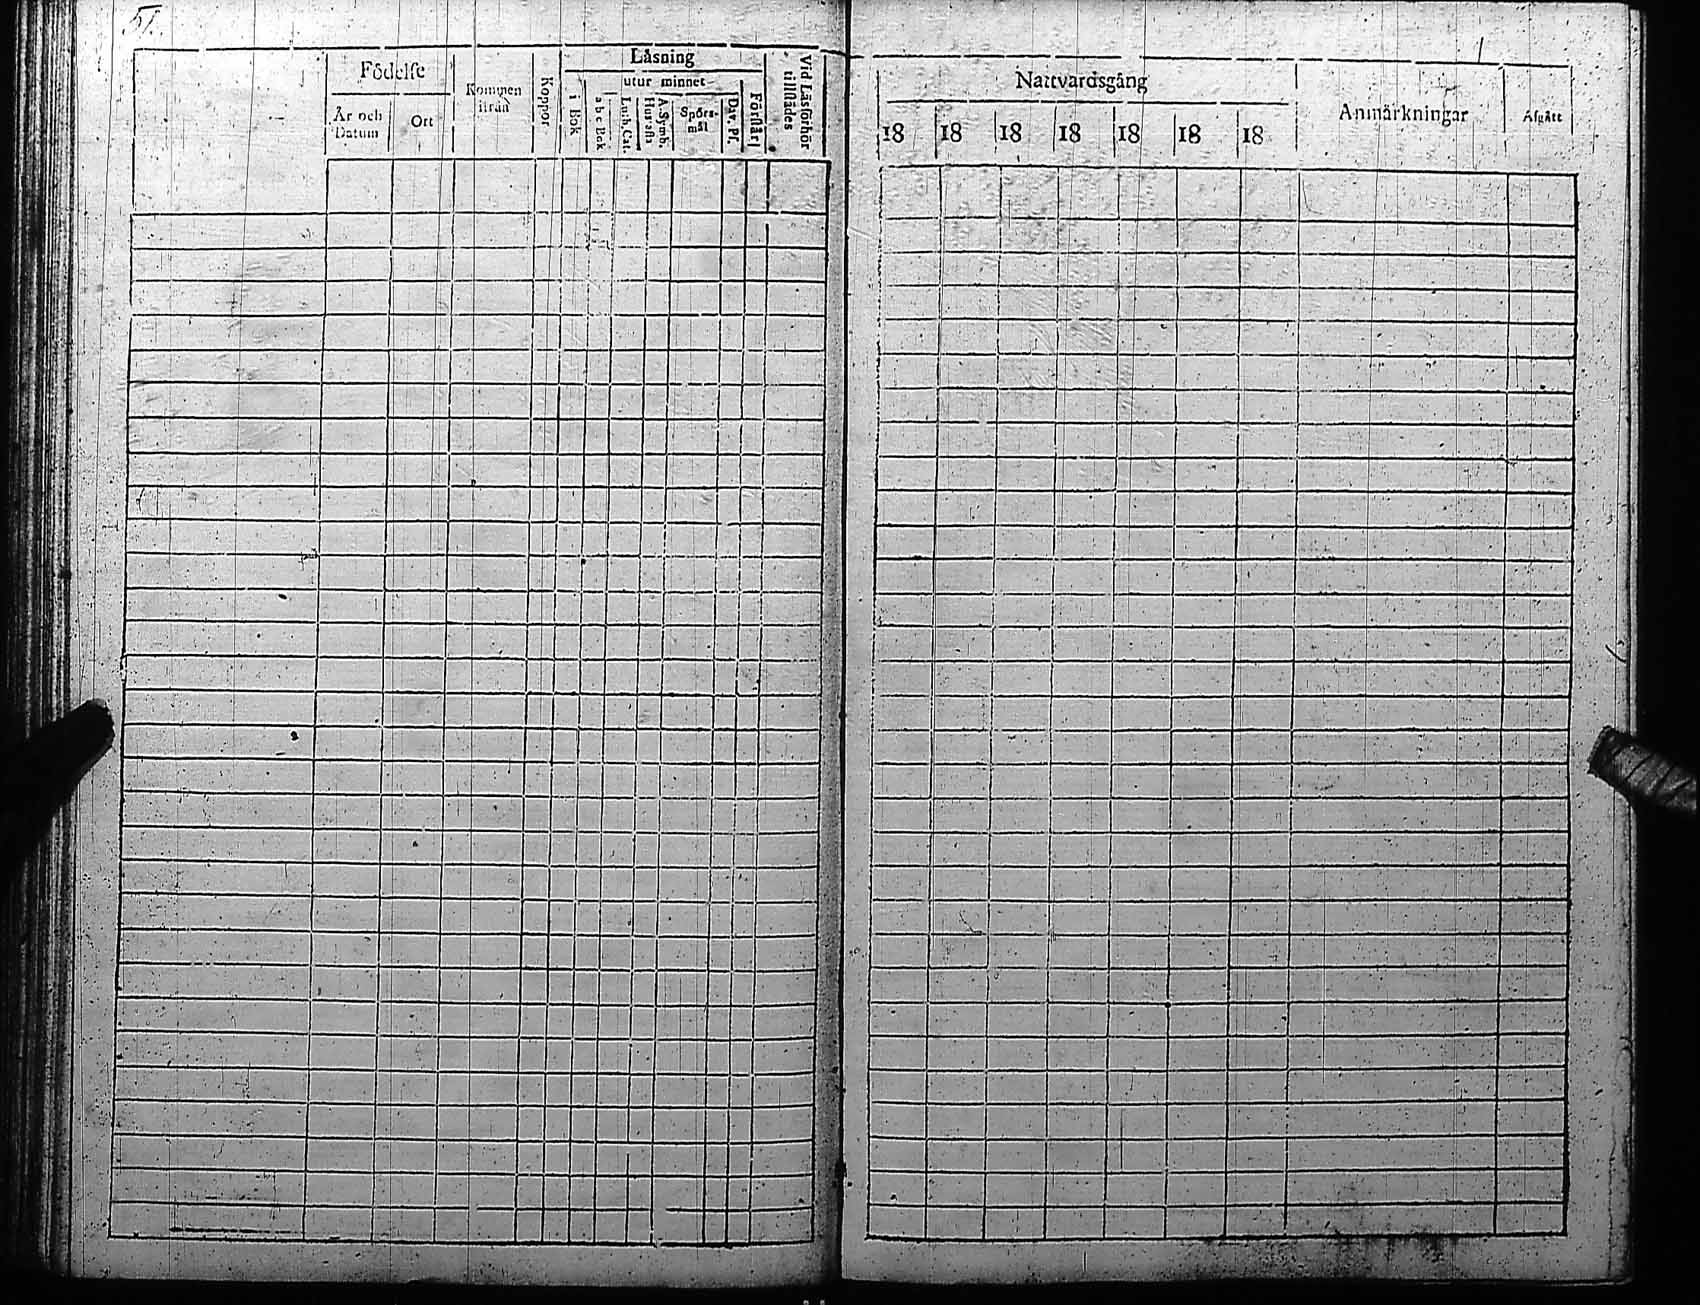 51.
Födelse
År och Datum
Ort
Kommen ifrån
Koppor
Läsning
utur minnet
i Bok
a b c Bok
Luth. Cat.
A. Symb. Hustafla
Spörs-mål
Dav. Ps.
Förstår
Vid Läsförhör tillstädes
Nattvardsgång
18 18 18 18 18 18 18
Anmärkningar
Afgått